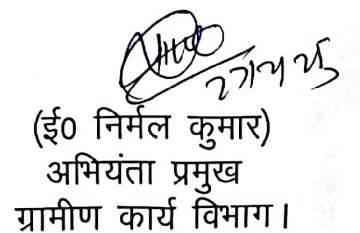 (ई0 निर्मल कुमार)
अभियंता प्रमुख
ग्रामीण कार्य विभाग।